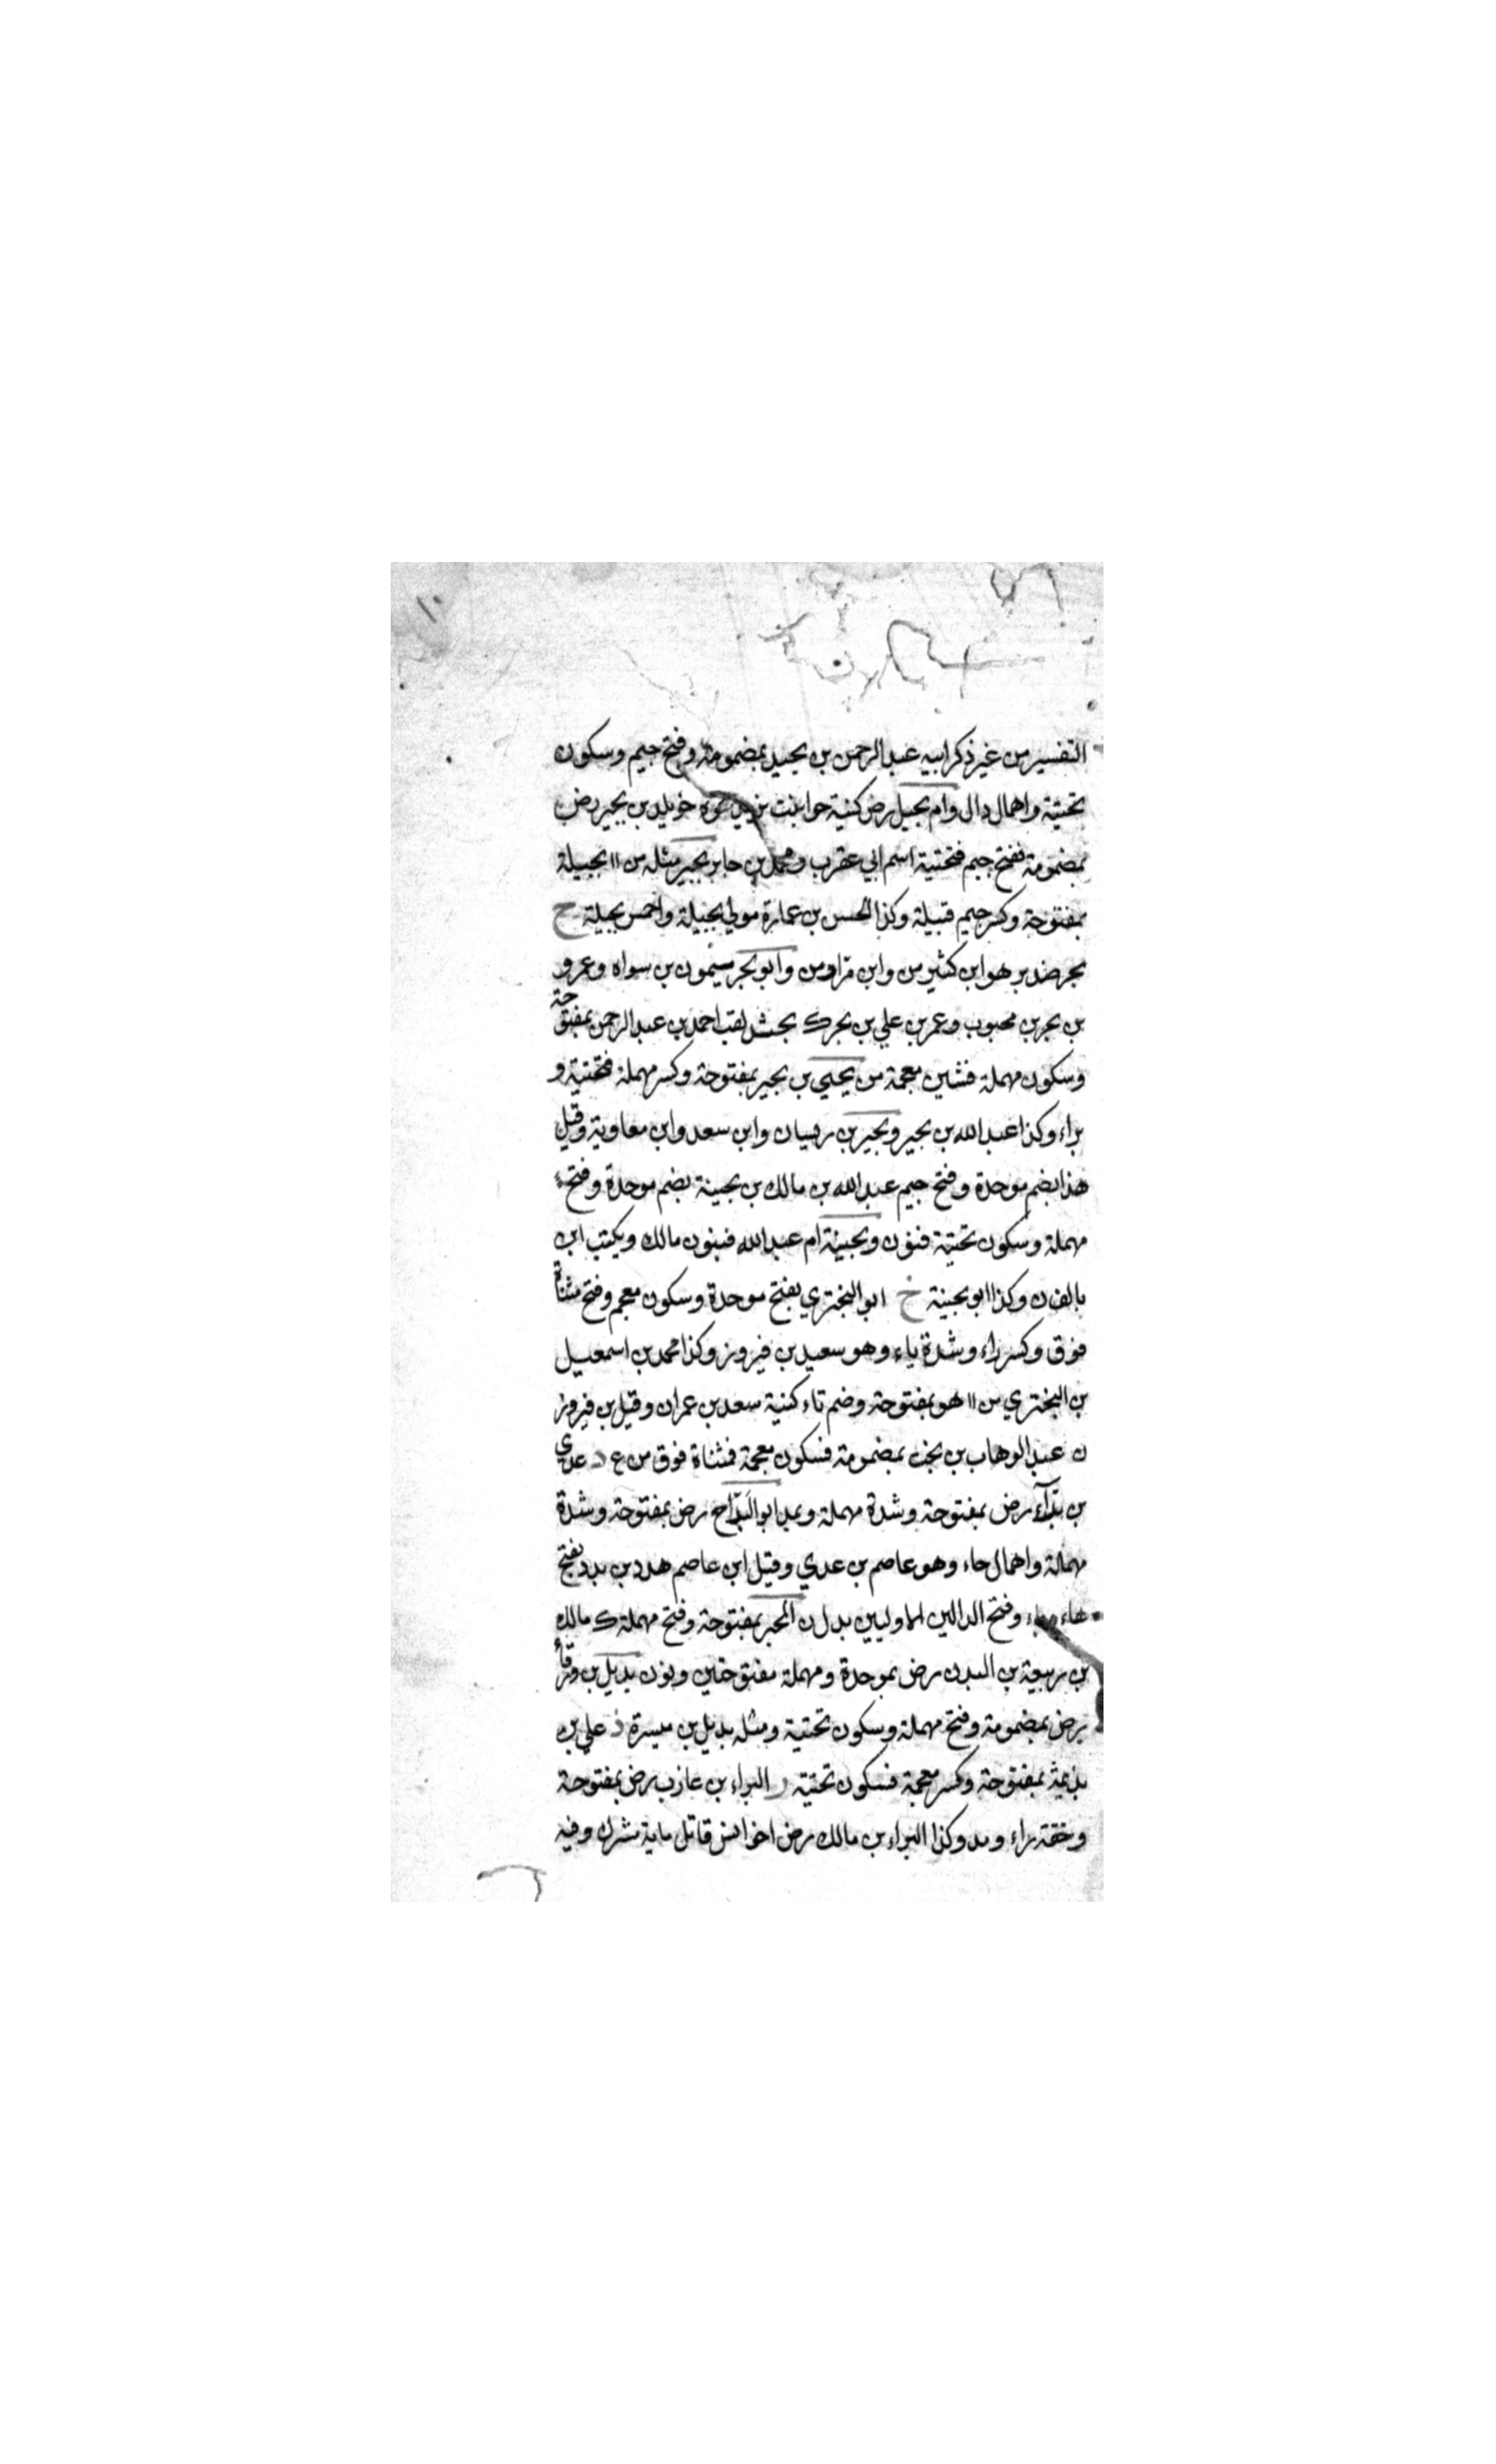 ١٠
التفسير من غير ذكر ابيه عبد الرحمن بن بجيد بمضمومة وفتح جيم وسكون
تحتية واهمال دال وام بجيد رض كنية حوا بنت يزيد خويلد بن بجير رض
بمضمومة ففتح جيم فتحتية اسم ابي عقرب ومحمد بن جابر بجير مثله من ١١ بجيلة
بمفتوحة وكسر جيم قبيلة وكذا الحسن بن عمارة مولى بجيلة واحمس بجيلة ح
بحر ضد بر هو ابن كثير من وابن مرار من وابو بحر سيمون بن سواه وعمرو
بن بحر بن محبوب وعمر بن علي بن بحر ك بحشل لقب احمد بن عبد الرحمن بمفتوحة
وسكون مهملة فشين معجمة من يحيي بن بحير بمفتوحة وكسر مهملة فتحتية و
براء وكذا عبد الله بن بحير وبحير بن ريسان وابن سعد وابن معاوية وقيل
هذا بضم موحدة وفتح جيم عبد الله بن مالك بن بحينة بضم موحدة وفتح
مهملة وسكون تحتية فنون وبحينة ام عبد الله فينون مالك ويكتب ابن
بالف ن وكذا ابو بحينة خ ابو البختري بفتح موحدة وسكون معجم وفتح مثناة
فوق وكسر راء وشدة ياء وهو سعيد بن فيروز وكذا محمد بن اسمعيل
بن البختري من ١١ هو بمفتوحة وضم تاء كنية سعد بن عمران وقيل بن فيروز
ن عبد الوهاب بن بخت بمضمومة فسكون معجمة فمثناة فوق من ع د عدي
بن بدّآء رض بمفتوحة وشدة مهملة وبمد ابو البدّاح رض بمفتوحة وشدة
مهملة واهمال حاء وهو عاصم بن عدي وقيل ابن عاصم هدد بن بدد بفتح
هاء وباء وفتح الدالين الاوليين بدل ن المحبر بمفتوحة وفتح مهملة ك مالك
بن ربيعة بن البدن رض بموحدة ومهملة مفتوحتين ونون بديل بن ورقاء
رض بمضمومة وفتح مهملة وسكون تحتية ومثله بديل بن ميسرة ذ علي بن
بذيمة بمفتوحة وكسر معجمة فسكون تحتية ر البراء بن عازب رض بمفتوحة
وخفة راء ومد وكذا البراء بن مالك رض اخو انس قاتل ماية مشرك وفيه